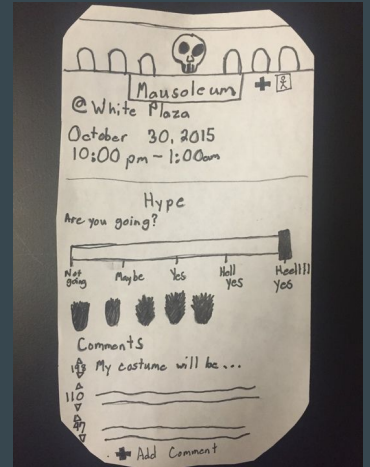 Mausoleum
@ White Plaza
October 30, 2015
10:00 pm - 1:00am
Hype
Are you going?
Not going
Maybe
Yes
Hell yes
Yes
Comments
My costume will be...
110
+ Add Comment